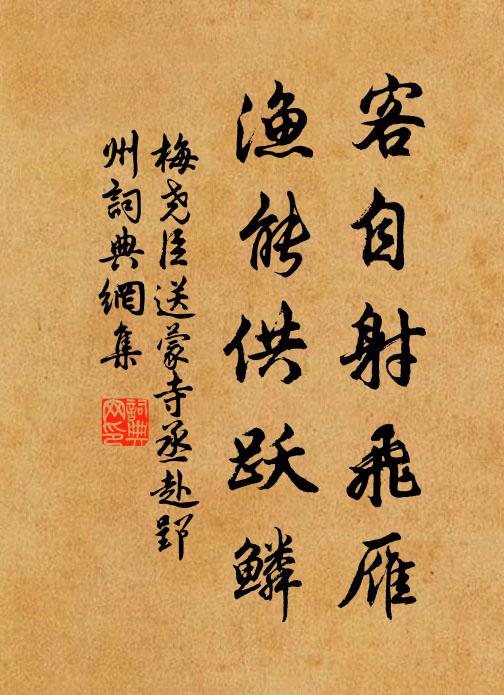 客自射飛雁
漁能供跃鱗
梅堯臣送蒙寺丞赴郢
州詞典網集
詞典
网印